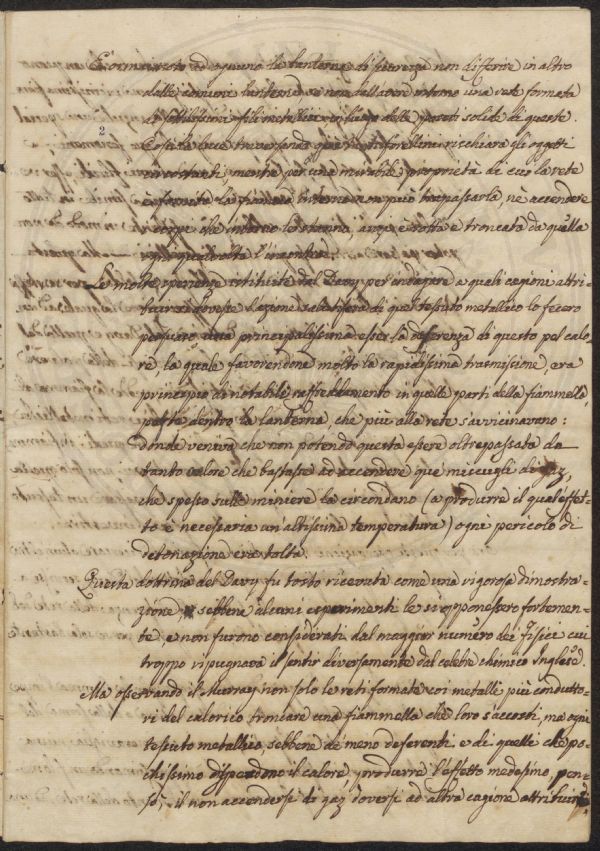 È ormai noto ad ognuno la lanterna di sicurezza non differire in altro
dalle comuni lanterne se non nell'avere intorno una rete formata
di sottilissimi fili metallici in luogo delle pareti solide di queste.
2
Così la luce traversando que' suoi forellini rischiara gli oggetti
circostanti, mentre per una mirabile proprietà di cui la rete
è fornita la fiamma interna non può trapassarla, nè accendere
i corpi che intorno le stanno, anzi è rotta e troncata da quella
ogni qualvolta l'incontra.
Le molte sperienze istituite dal Davy per indagare a quali cagioni attri-
buire si dovesse l'azione salutifera di quel tessuto metallico lo fecero
persuaso una principalissima esser la deferenza di questo pel calo-
re la quale favorendone molto la rapidissima trasmissione, era
principio di notabile raffreddamento in quelle parti della fiammella
poste dentro la lanterna, che più alla rete s'avvicinavano:
donde veniva che non potendo questa essere oltrepassata da
tanto calore che bastasse ad accendere que' miscugli di gaz,
che spesso nelle miniere la circondano (a produrre il qual effet-
to è necessaria un'altissima temperatura) ogni pericolo di
detonazione era tolta.
Questa dottrina del Davy fu tosto ricevuta come una rigorosa dimostra-
zione, e sebbene alcuni esperimenti le si opponessero fortemen-
te, e non furono considerati dal maggior numero dei fisici cui
troppo ripugnava il sentir diversamente dal celebre chimico Inglese.
Ma osservando il Murray non solo le reti formate coi metalli più condutto-
ri del calorico troncare una fiammella che loro s'accosti, ma ogni
tessuto metallico, sebbene de' meno deferenti e di quelli che po-
chissimo disperdono il calore, produrre l'effetto medesimo, pen-
sò, il non accendersi di gaz doversi ad altra cagione attribuire;